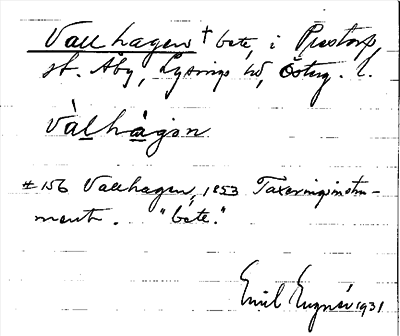 Vallhagen † bete, i Prestorp,
st. Åby, Lysings hd, Östg. l.
vàlhàgɜn
# 156 Vallhagen, 1853 Taxeringsinstru-
ment. "bete."
Emil Eugnér 1931